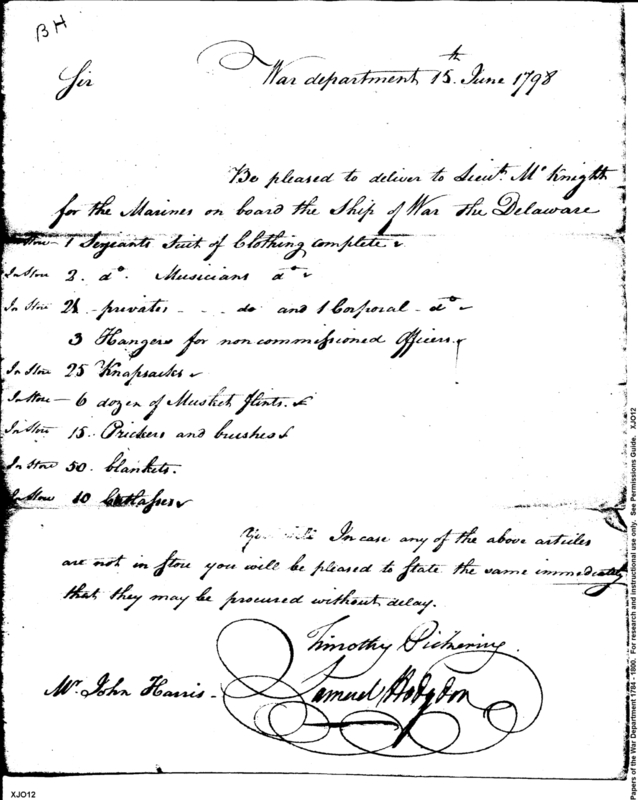 BH
War department 15th June 1798
Sir
Be pleased to deliver to Lieut. Mc Knight
for the Marines on board the Ship of War the Delaware
In Store - 1 Serjeants Suit of Clothing complete
In Store 2. do. Musicians do
In Store privates - - . do and 1 Corporal - do
3 Hangers for non commissioned Officers.
In Store 25 Knapsacks
In Store - 6 dozen of Musket flints.
In Store 15. Prickers and brushes
In Store 50. blankets.
In Store 10 Cutlasses
In case any of the above articles
are not in Store you will be pleased to State the same immediately
that they may be procured without delay.
Timothy Pickering.
Mr. John Harris - Samuel Hodgdon
XJO12
Papers of the War Department 1784 - 1800. For research and instructional use only. See Permissions Guide. XJO12